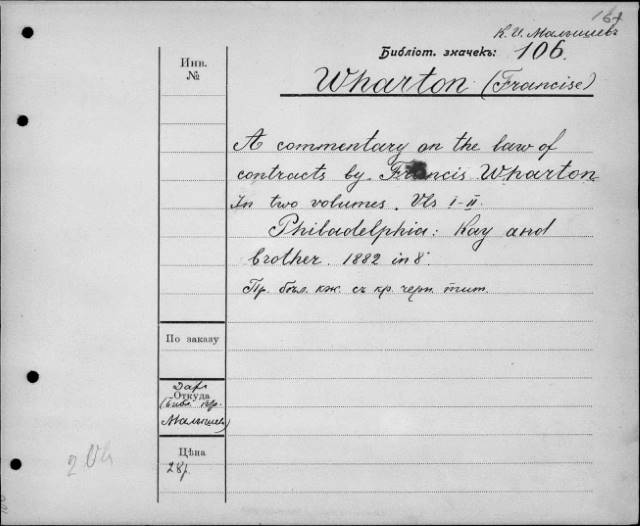 К. И. Малышевъ
Библіот. значекъ: 106.
Инв.
№
Wharton (Francise)
A commentary on the law of
contracts by Francis Wharton
In two volumes. Vls I-II
Philadelphia: Kay and
brother. 1882 in 8°
Пр. бѣл. кж. съ кр. черн. тит.
По заказу
Даръ
Откуда
(Библ. пр.
Малышева)
Цѣна
28р.